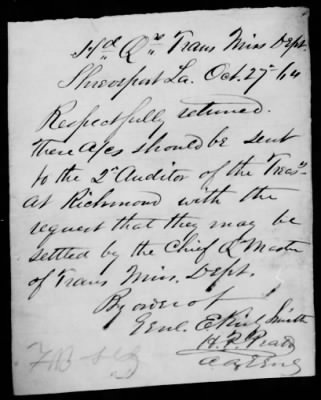 Hd Qrs Trans Miss Dept.
Shreveport La. Oct. 27th /64
Respectfully returned.
These a/cs should be sent
to the 2d Auditor of the Treasy
at Richmond with the
request that they may be
settled by the Chief Q Master
of Trans Miss. Dept.
By order of
Genl. E Kirby Smith
H. P. Pratt
A A Genl